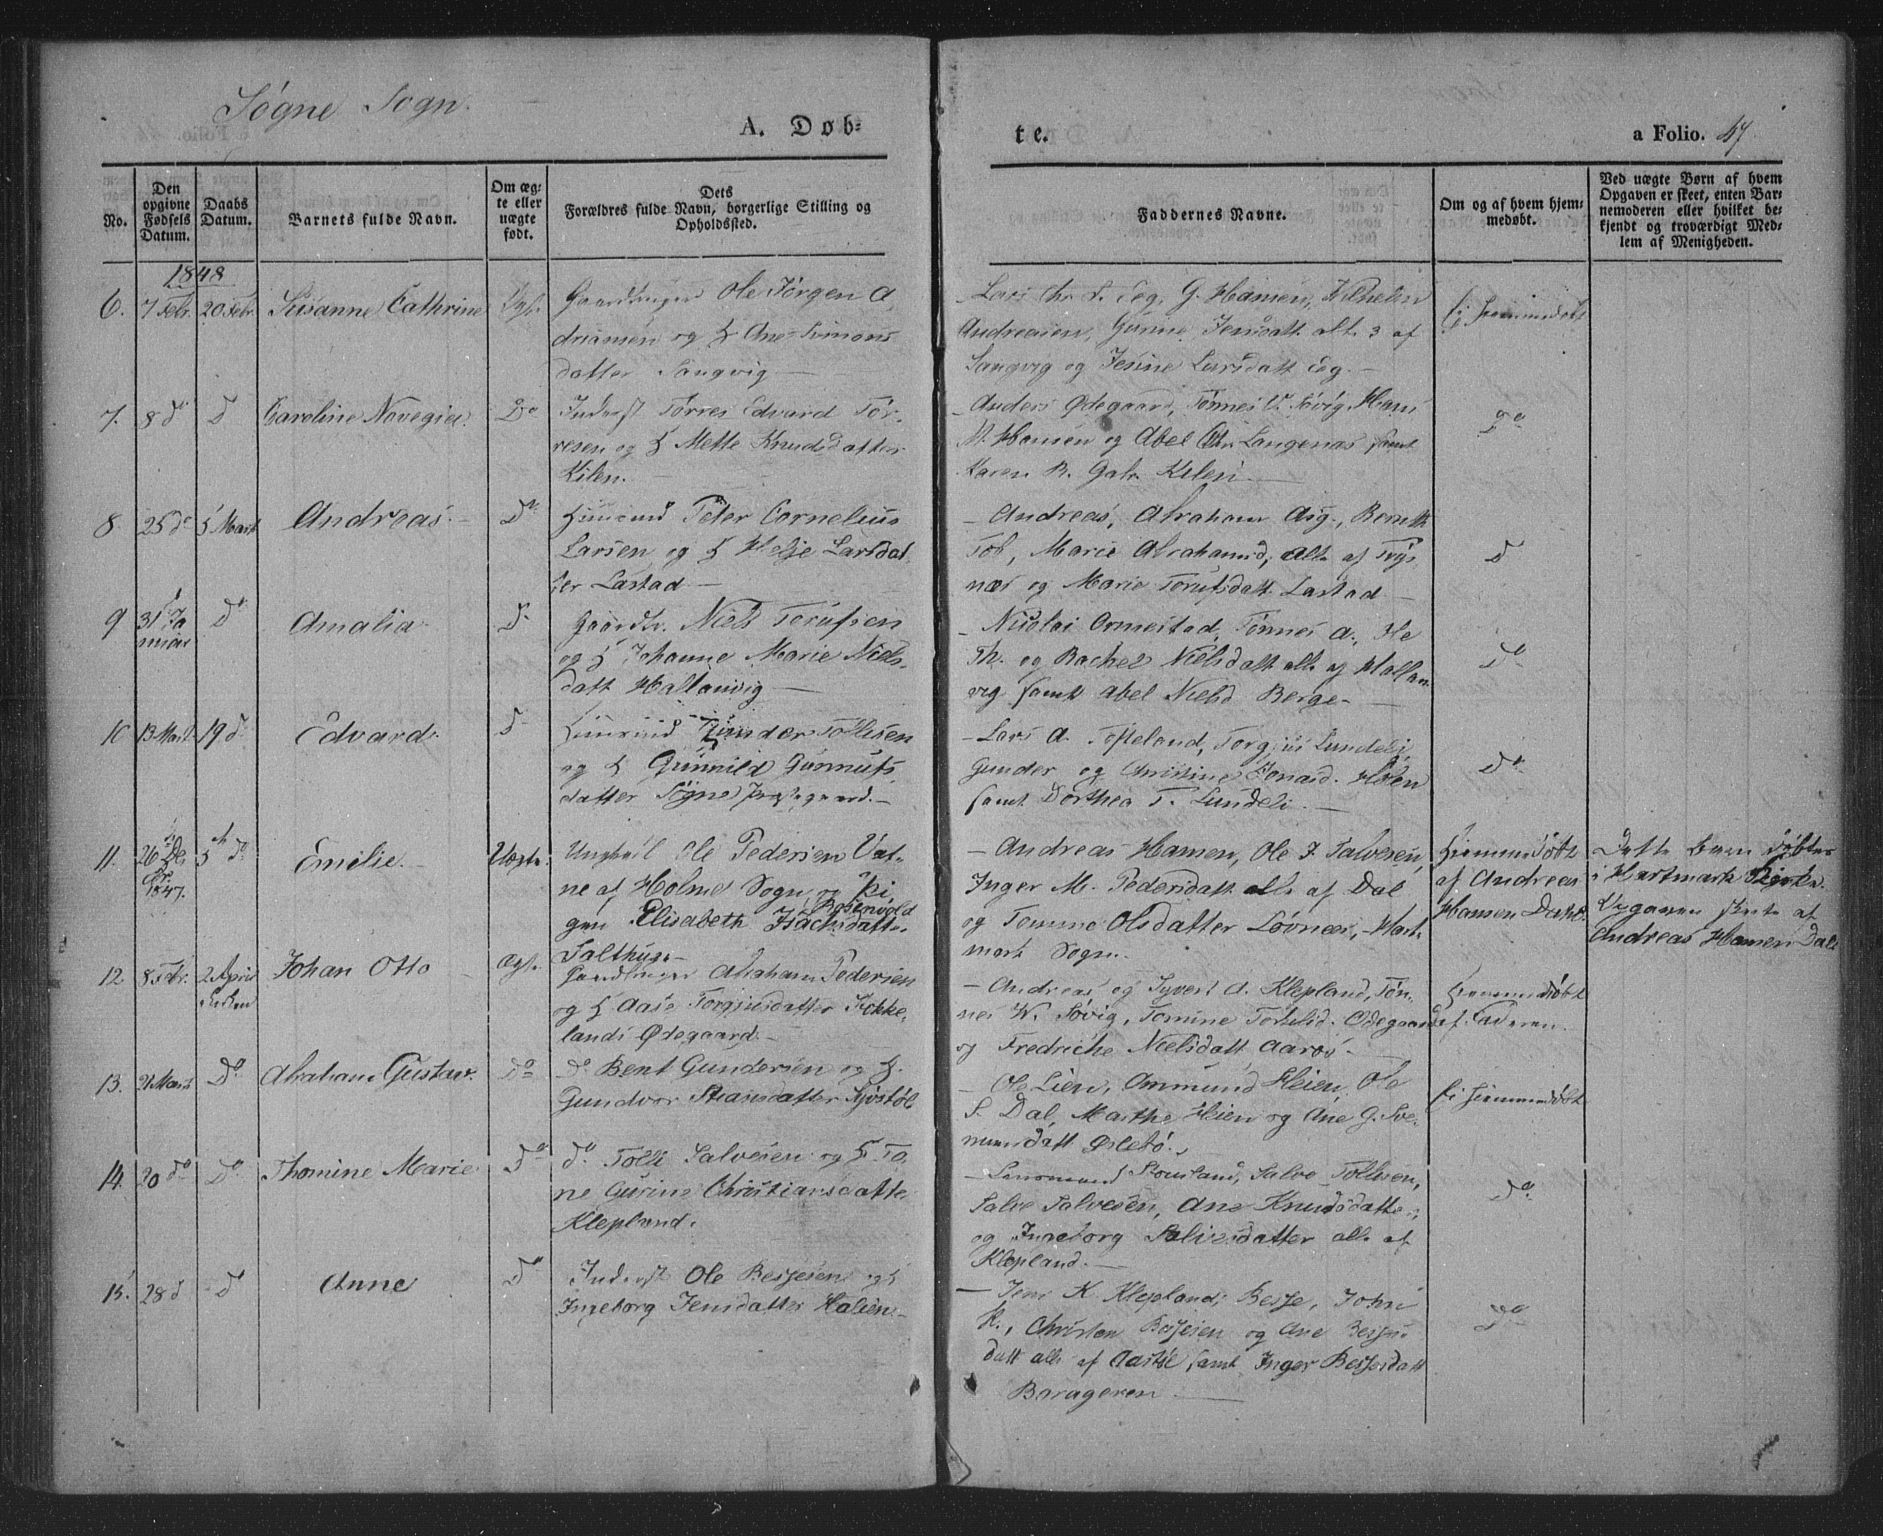 Søgne Sogn.
A. Døb-
te.
a Folio. 47
No.
Den opgivne Fødsels Datum.
Daabs Datum.
Barnets fulde Navn.
Om æg-te eller uægte født.
Dets Forældres fulde Navn, borgerlige Stilling og Opholdssted.
Faddernes Navne.
Om og af hvem hjem-medøbt.
Ved uægte Børn af hvem Opgaven er skeet, enten Bar-nemoderen eller hvilket be-kjendt og troværdigt Med-lem af Menigheden.
1848
6. 7 Febr. 20 Febr. Susanne Cathrine Ægt.
Ole Jørgen A
driansen og H Ane Simons
datter Langvig —
Hansen, Vilhelm
Andreasen, Gunne Jensdatt alle 3 af
Langvig og Jesine Larsdatt Eeg. —
Ei Hjemmedøbt
7. 8 do D Caroline Novegia. Do
Inderst Torres Edvard Tor-
resen og H Mette Knudsdatter
Kilen. —
— Anders Ødegaard, Tønnes Søvig, Hans
Hansen og Abel Chr. Langenæs samt
Karen R. Kilen. —
Do
8 25 do 5 Mart Andreas. Do
Huusmd Peter Cornelius
Larsen og H Helje Larsdat-
ter Lastad —
— Andreas, Abraham Aig., Bernth
Tob, Marie Abrahamsd, alle af Trys
næs og Marie Torufsdatt Lastad —
D
9 31 Ja
nuar Do Amalia D
Gaardbr. Niels Torufsen
og H Johanne Marie Niels-
datt Hallanvig —
— Nicolai Ormestad, Tønnes A., Ole
Th. og Rachel Nielsdatt alle af Hallan-
vig samt Abel Nielsd Berge —
Do
10 13 Mart 19 d Edvard. D
Huusmd Gunder Tollisen
og H Gunnild Gunnufs
datter Søgne Præstegaard. —
— Lars A. Tofteland, Torgjus Lundeli,
Gunder og Christine Jonasd. Holen
samt Dorthea T. Lundeli. —
Do
11. 26
1847. 5 do Emilie. — Uægte.
Ungkarl Ole Pedersen Vat-
ne af Holme Sogn og Pi-
gen Elisabeth Isachsdatt.
Rosenvold
Salthuse —
— Andreas Hansen, Ole J. Salvesen,
Inger M. Pedersdatt alle af Dal
og Tomine Olsdatter Løvnæs, Hart-
mark Sogn. —
Hjemmedøbt
af Andreas
Hansen Dahl.
Dette Barn døbtes
i Hartmark Kirke.
Opgaven skeete af
Andreas Hansen Dal
12 8 Febr. 2 April Johan Otto Ægt.
Abraham Pedersen
og H Aase Torgjusdatter Stokke-
lands Ødegaard —
— Andreas og Syvert A. Klepland, Tøn-
nes W. Søvig, Tomine Torkelsd. Ødegaard
og Fredriche Nielsdatt Aarøs —
Hjemmedøbt
af Faderen.
13. 21 Mart Do Abraham Gustav. Do
Do Bent Gundersen og H.
Gundvor Stiansdatter
— Ole Lien, Ommund Heien, Ole
S. Dal, Marthe Heien og Ane G. Sve-
nunsdatt Øslebø.
Ei Hjemmedøbt
14. 20 do Do Thomine Marie Do
do Tolli Salvesen og H To-
ne Gurine Christiansdatte
Klepland.
Stousland, Salve Tollisen,
Salve Salvesen, Ane Knudsdatter,
og Ingeborg Salvesdatter alle af
Klepland. —
Do
15. 28 d D Anne Do
Inderst Ole Bessesen og H
Ingeborg Jensdatter Halien —
— Jens K. Klepland, Besse, John
K., Christen Bessesen og Ane Besses-
datt alle af samt Inger Bessesdatt
Borageren —
Do